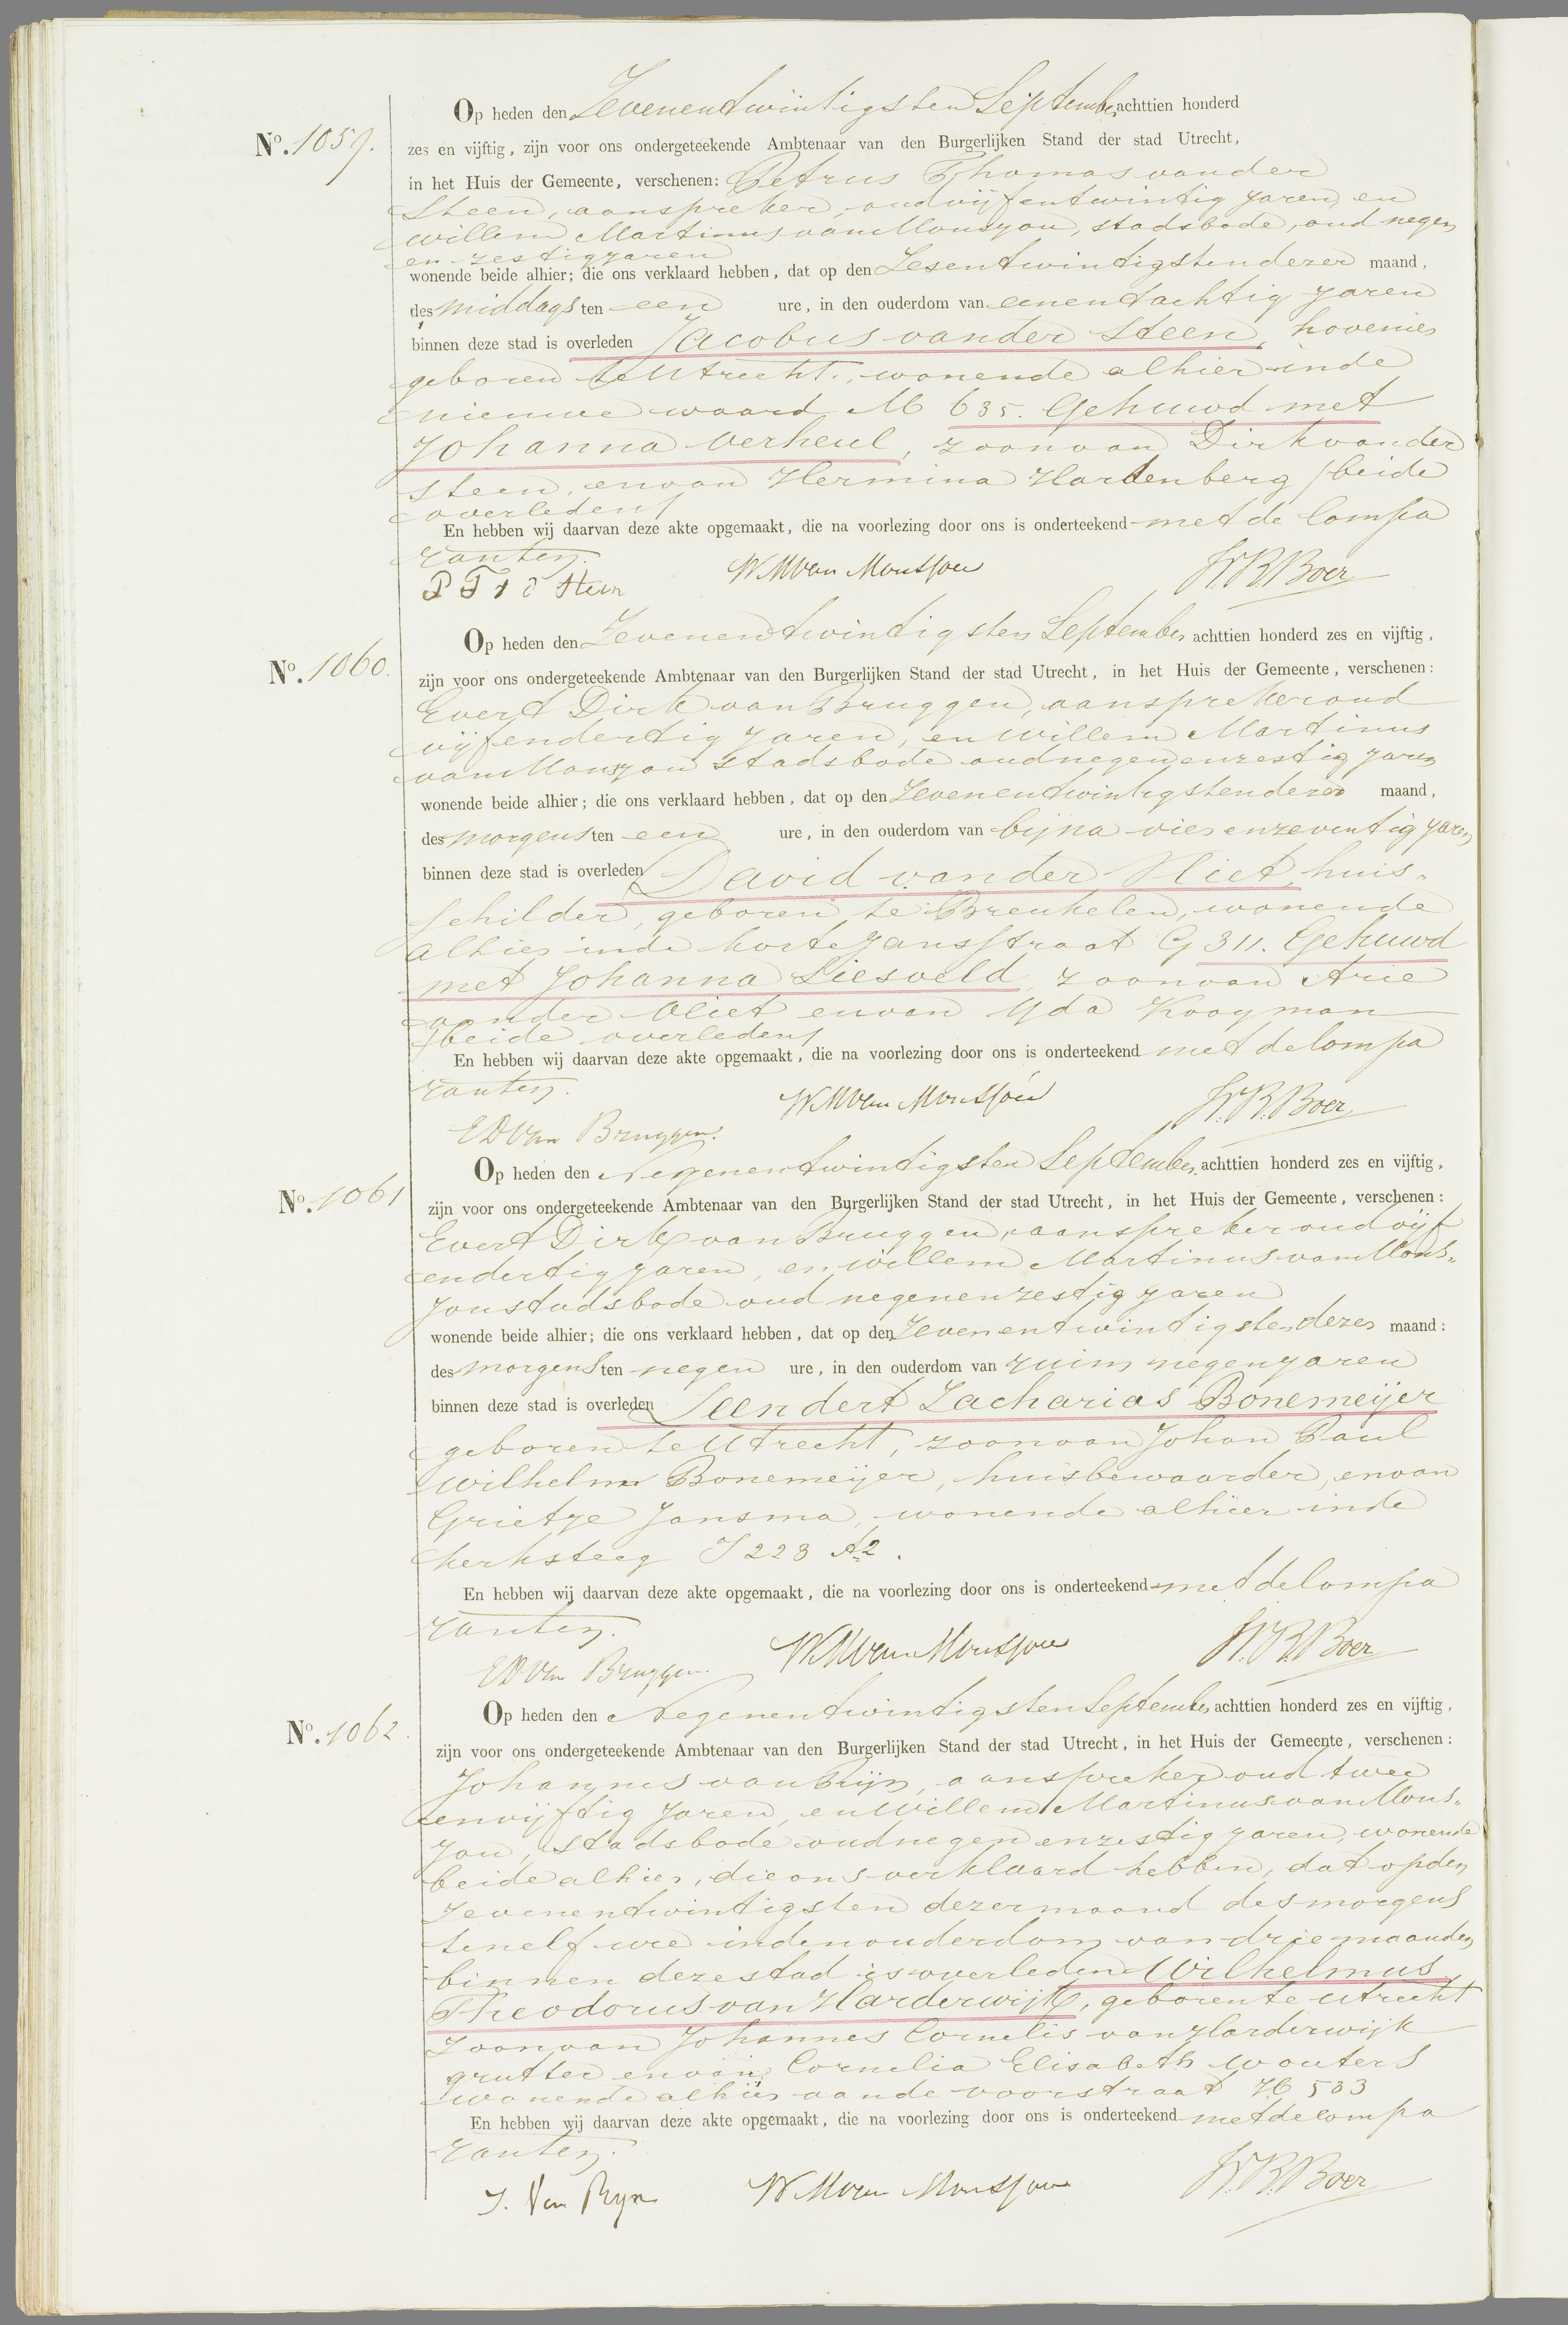 Op heden den Zevenentwintigsten September achttien honderd
No. 1059.
zes en vijftig, zijn voor ons ondergeteekende Ambtenaar van den Burgerlijken Stand der stad Utrecht,
in het Huis der Gemeente, verschenen: Petrus Thomas van der
Steen, aanspreker, oud vijfentwintig jaren, en
Willem Martinus van Monsjou, stadsbode, oud negen
en zestig jaren
wonende beide alhier; die ons verklaard hebben, dat op den Zesentwintigsten dezer maand,
des middags ten een ure, in den ouderdom van eenentachtig jaren
binnen deze stad is overleden Jacobus van der Steen, hovenier
geboren te Utrecht, wonende alhier in de
nieuwe waard M 635. Gehuwd met
Johanna Verheul, zoon van Dirk van der
Steen, en van Hermina Hardenberg /beide
overleden/
En hebben wij daarvan deze akte opgemaakt, die na voorlezing door ons is onderteekend met de Compa
ranten.
P T v d Steen W M van Monsjou W.B. Boer
Op heden den Zevenentwintigsten September achttien honderd zes en vijftig,
No. 1060.
zijn voor ons ondergeteekende Ambtenaar van den Burgerlijken Stand der stad Utrecht, in het Huis der Gemeente, verschenen:
Evert Dirk van Bruggen, aanspreker oud
vijfendertig jaren, en Willem Martinus
van Monsjou stadsbode oud negenenzestig jaren
wonende beide alhier; die ons verklaard hebben, dat op den Zevenentwintigsten dezer maand,
des morgens ten een ure, in den ouderdom van bijna vier en zeventig jaren
binnen deze stad is overleden David van der Vliet, huis-
schilder, geboren te Breukelen, wonende
alhier in de korte Jansstraat G 311. Gehuwd
met Johanna Liesveld, zoon van Arie
van der Vliet en van Yda Kooyman
/beide overleden/
En hebben wij daarvan deze akte opgemaakt, die na voorlezing door ons is onderteekend met de Compa
ranten.
E D van Bruggen. W M van Monsjou W.B. Boer
Op heden den Negenentwintigsten September achttien honderd zes en vijftig,
No. 1061
zijn voor ons ondergeteekende Ambtenaar van den Burgerlijken Stand der stad Utrecht, in het Huis der Gemeente, verschenen:
Evert Dirk van Bruggen, aanspreker oud vijf
endertig jaren, en Willem Martinus van Mons-
jou stadsbode oud negenenzestig jaren
wonende beide alhier; die ons verklaard hebben, dat op den Zevenentwintigsten dezer maand:
des morgens ten negen ure, in den ouderdom van ruim negen jaren
binnen deze stad is overleden Leendert Zacharias Bonemeijer
geboren te Utrecht, zoon van Johan Paul
Wilhelm Bonemeijer, huisbewaarder, en van
Grietje Jansma, wonende alhier in de
kerksteeg I 223 A2.
En hebben wij daarvan deze akte opgemaakt, die na voorlezing door ons is onderteekend met de Compa
ranten.
E D van Bruggen. W M van Monsjou W.B. Boer
Op heden den Negenentwintigsten September achttien honderd zes en vijftig,
No. 1062.
zijn voor ons ondergeteekende Ambtenaar van den Burgerlijken Stand der stad Utrecht, in het Huis der Gemeente, verschenen:
Johannes van Rijn, aanspreker oud twee
envijftig jaren, en Willem Martinus van Mons-
jou, stadsbode oud negen enzestig jaren, wonende
beide alhier, die ons verklaard hebben, dat op den
Zevenentwintigsten dezer maand des morgens
ten elf ure in den ouderdom van drie maanden
binnen deze stad is overleden Wilhelmus
Theodorus van Harderwijk, geboren te Utrecht
Zoon van Johannes Cornelis van Harderwijk
grutter en van Cornelia Elisabeth Wouters
wonende alhier aan de voorstraat H 533
En hebben wij daarvan deze akte opgemaakt, die na voorlezing door ons is onderteekend met de Compa
ranten.
J. van Ryn W M van Monsjou W.B. Boer